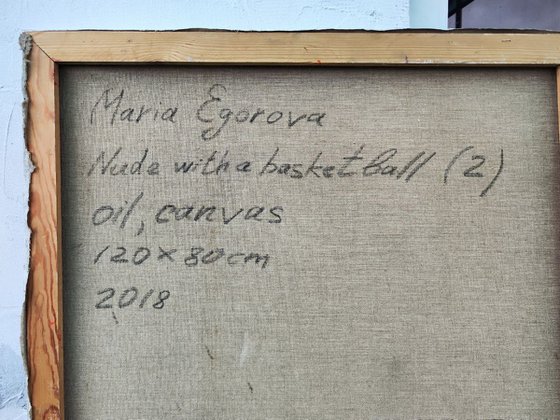 Maria Egorova
Nude with a basketball (2)
oil, canvas
120×80cm
2018